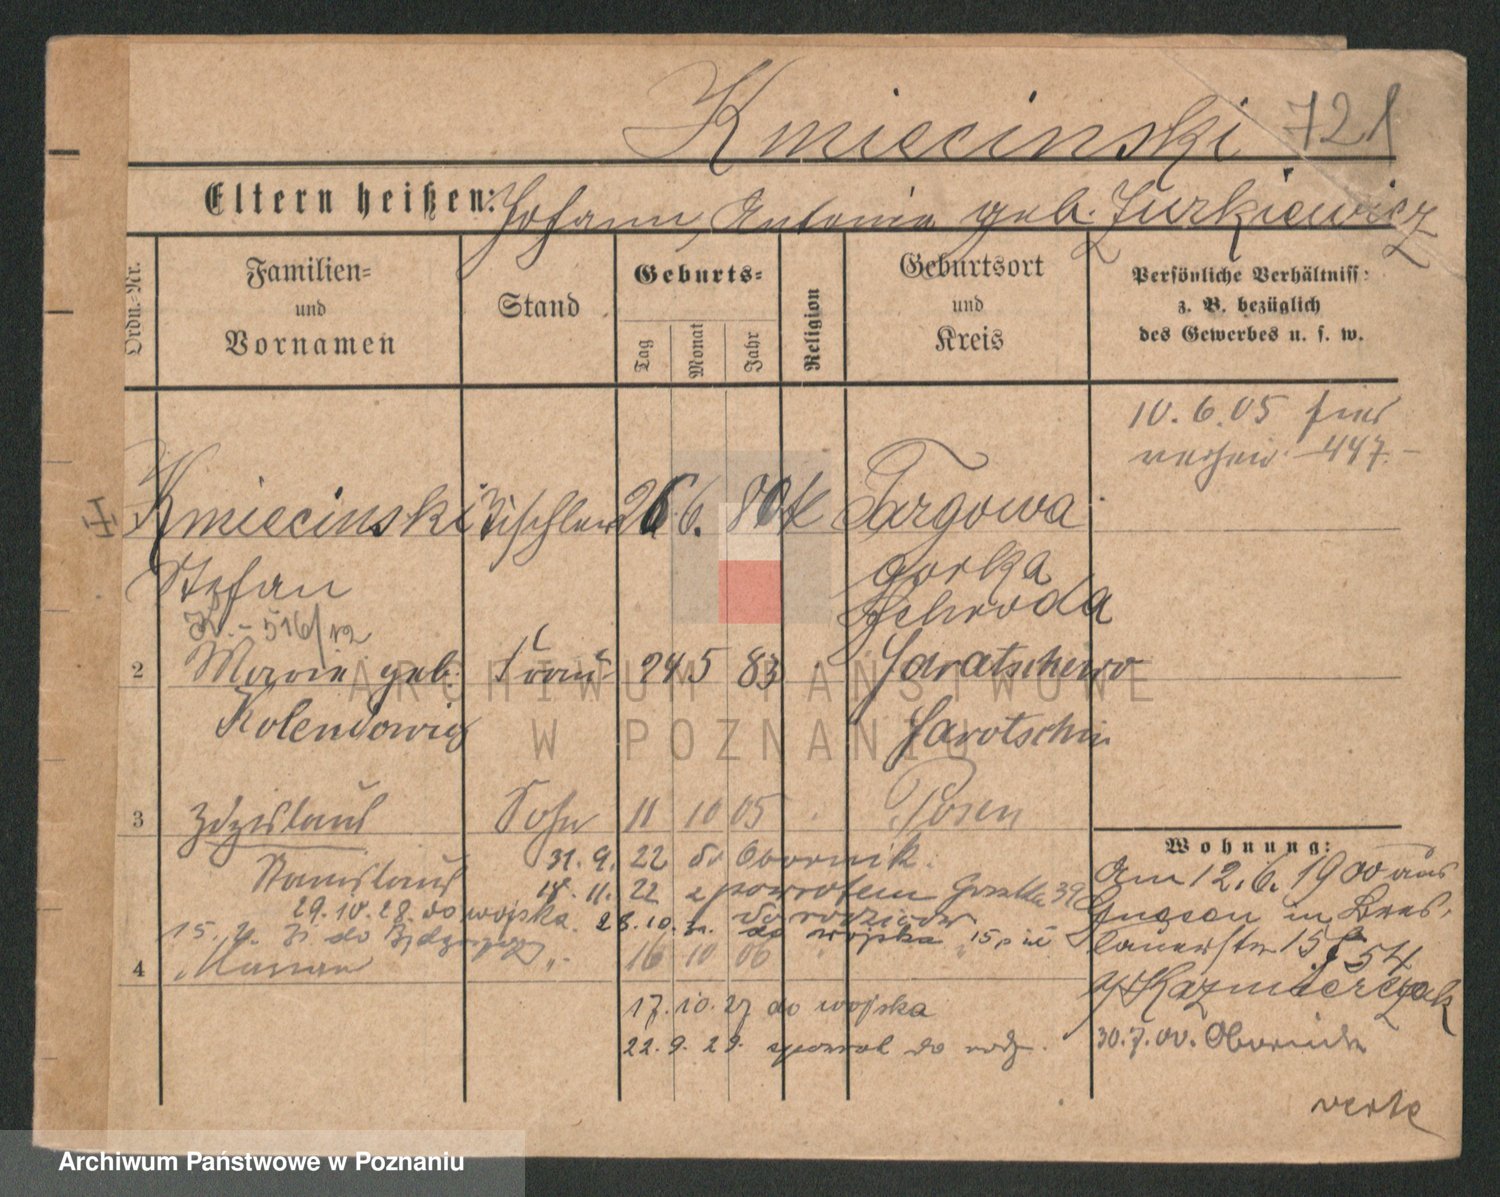 Kmiecinski 721
Eltern heißen: Johann, Antonie geb. Zurkiewicz
Ordn.-Nr.
Familien-
und
Vornamen
Stand
Geburts-
Tag
Monat
Jahr
Religion
Geburtsort
und
Kreis
Persönliche Verhältniss-
z. B. bezüglich
des Gewerbes u. s. w.
10. 6. 05 hier
447.
Kmiecinski Tischler 26 6. 80 k Targowa
Stefan gorka
Schroda
516/12
2 Marie geb. Frau 24 5 83 Jaratschewo
Kolendowicz Jarotschin
3 Zdzislaus Sohn 11 10 05 Posen
Stanislaus 31. 9. 22 do Obornik.
14. 11. 22 z powrotem 39
29. 10. 28. do wojska. 28. 10. do rodziców
do wojska 15
15. do Bydgoszczy
4 Marian 16 10 06
17. 10. 27 do wojska
22. 9. 29. do rodz.
Wohnung:
Am 12. 6. 1900 aus
Gnesen in Bres-
lauerstr 15 54
Kazmierczak
30. 7. 00. Obornik
verte
ARCHIWUM PAŃSTWOWE
W POZNANIU
Archiwum Państwowe w Poznaniu